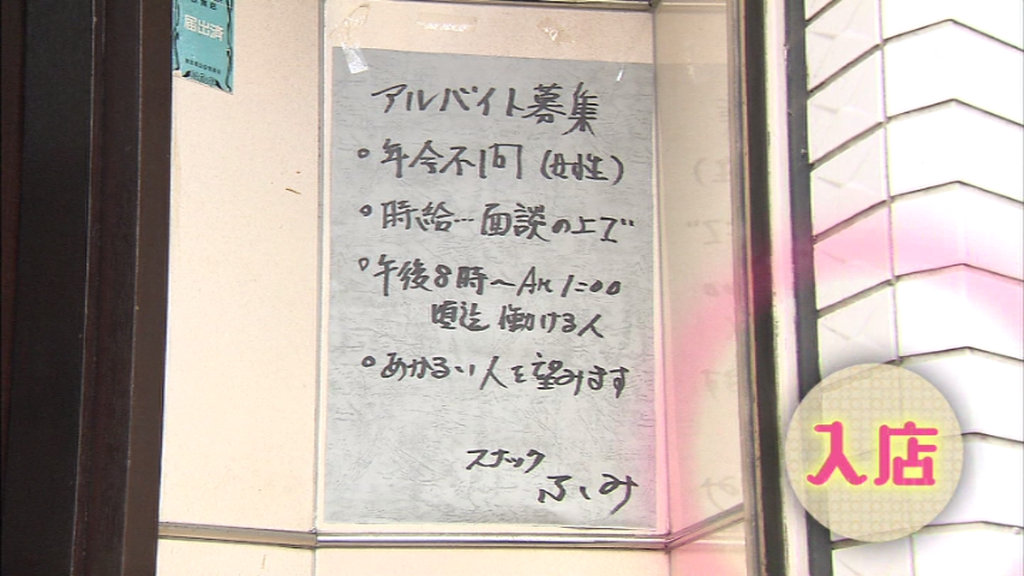 届出済
アルバイト募集
・年令不問(女性)
・時給…面談の上で
・午後8時〜AM1:00
頃迄 働ける人
・あかるい人を望みます
スナック
ふみ
入店